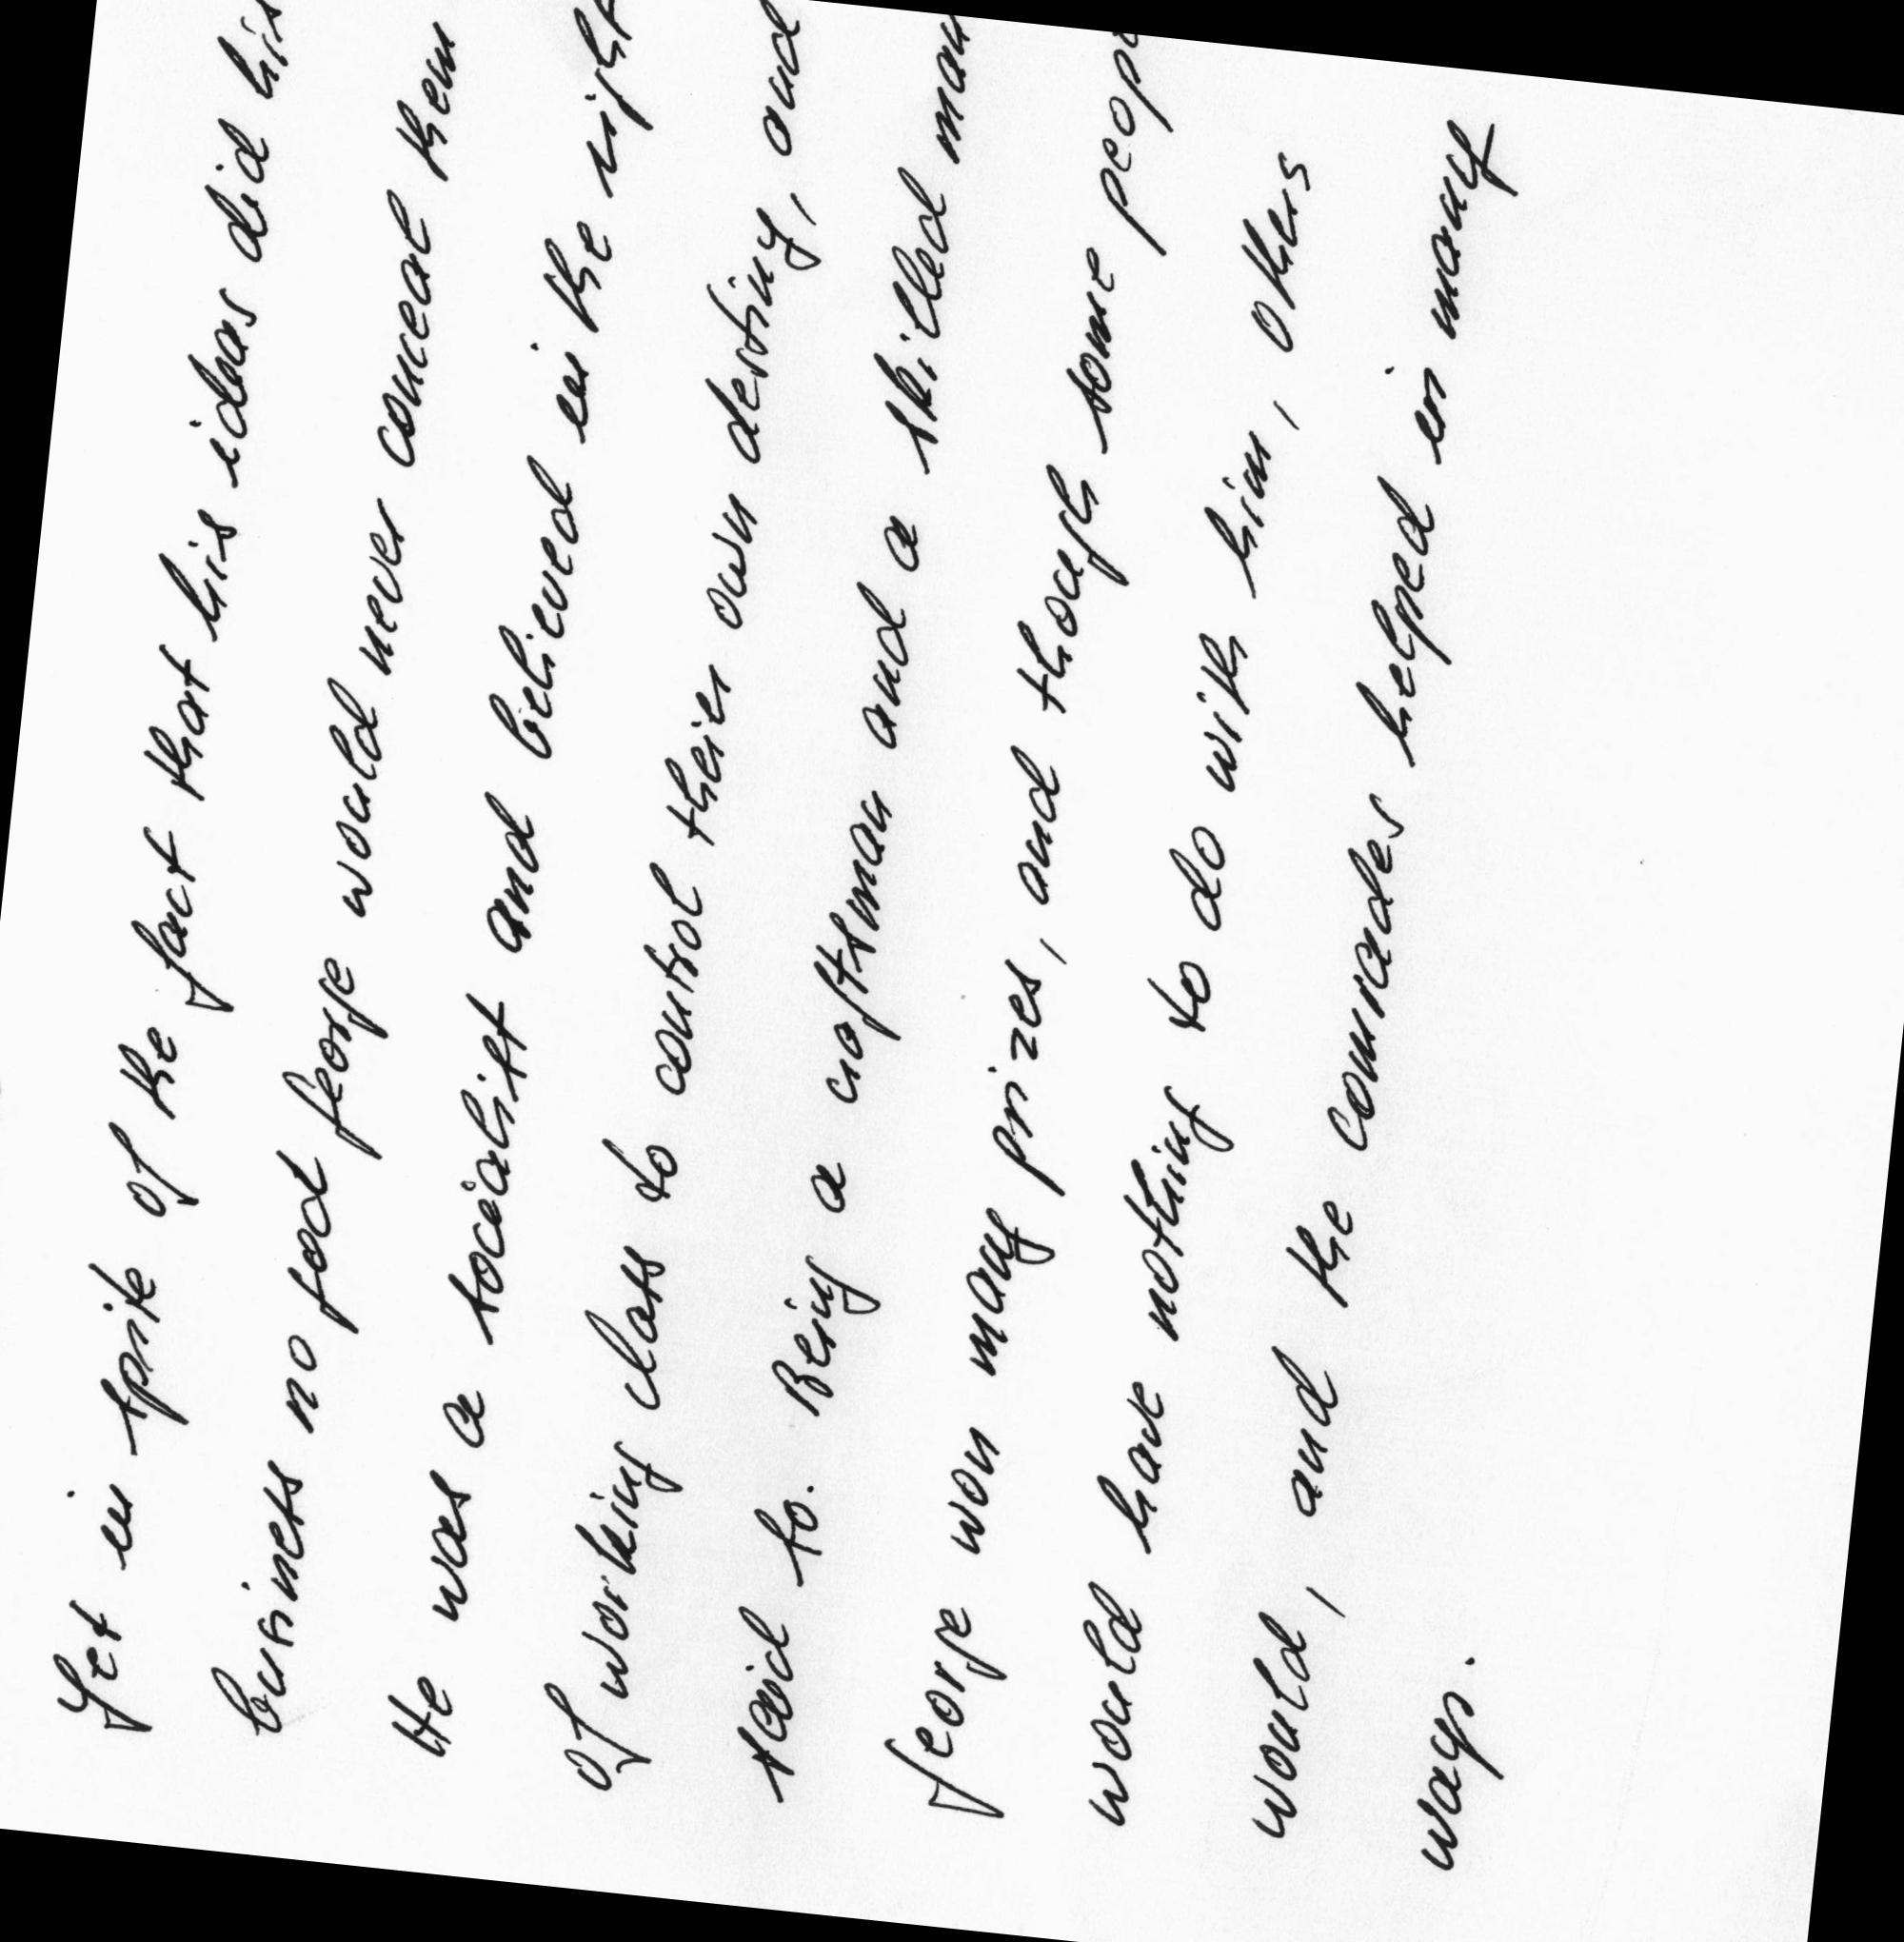 Yet in spite of the fact that his ideas did his
business no good George would never conceal them
He was a socialist and believed in the right
of working class to control their own destiny, and
said so. Being a craftsman and a skilled man
George won many prizes, and though some peop
would have nothing to do with him, others
would, and the comrades helped in many
ways.